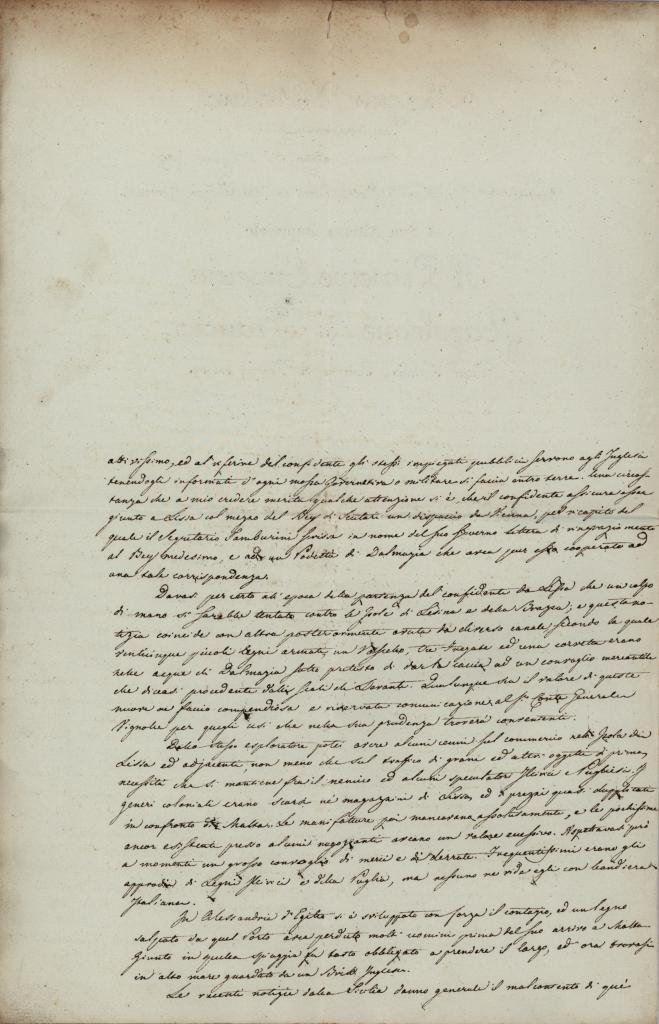 attivissimo, ed al riferire del confidente gli stessi impiegati pubblici servono agli Inglesi
tenendogli informati d'ogni mossa Governativa o militare si faccia entro terra. Una circos-
tanza che a mio credere merita qualche attenzione si è, che il confidente assicura esser
giunto a Lissa col mezzo del Bey di Scutari un dispaccio da Vienna, pel ricapito del
quale il Segretario Tamburini scrisse in nome del suo Governo lettera di ringraziamento
al Bey medesimo, e ad un Podestà di Dalmazia che avea pur esso cooperato ad
una tale corrispondenza.
Davasi per certo all'epoca della partenza del confidente da Lissa che un colpo
di mano si sarebbe tentato contro le Isole di Lesina e della Brazza; e questa no-
tizia coincide con altra posteriormente avuta da diverso canale secondo la quale
ventiquinque piccoli Legni armati, un Vascello, tre Fregate ed una corvetta erano
nelle acque di Dalmazia sotto pretesto di dar la caccia ad un convoglio mercantile
che diceasi procedente dalli Scali di Levante. Qualunque sia il valore di queste
nuove ne faccio compendiosa e riservata comunicazione al Sr. Conte Generale
Vignolle per quegli usi che nella sua prudenza troverà convenienti.
Dallo stesso esploratore potei avere alcuni cenni sul commercio nell' Isola di
Lissa ed adjacenti, non meno che sul traffico di grani ed altri oggetti di prima
necessità che si mantiene fra il nemico ed alcuni speculatori Illirici e Pugliesi. I
generi coloniali erano scarsi ne' magazzini di Lissa, ed i prezzi quasi duplicati
in confronto di Malta. Le manifatture poi mancavano assolutamente, e le pochissime
ancor esistenti presso alcuni negozianti aveano un valore eccessivo. Aspettavasi però
a momenti un grosso convoglio di merci e di derrate. Frequentissimi erano gli
approdi di Legni Illirici e della Puglia, ma nessuno ne vide egli con bandiera
Italiana.
In Alessandria d'Egitto si è sviluppato con forza il contagio, ed un legno
salpato da quel Porto avea perduto molti uomini prima del suo arrivo a Malta.
Giunto in quella spiaggia fu tosto obbligato a prendere il largo, ed ora trovasi
in alto mare guardato da un Brick Inglese.
Le recenti notizie dalla Sicilia danno generale il malcontento di que'